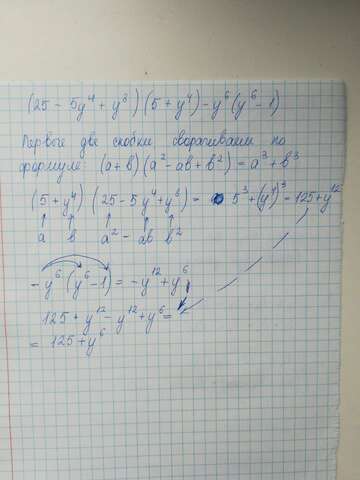 (25 - 5y⁴ + y⁸)(5 + y⁴) - y⁶(y⁶ - 1)
Первые две скобки сворачиваем по
формуле: (a+b)(a² - ab + b²) = a³ + b³
(5 + y⁴)(25 - 5y⁴ + y⁸) = 5³ + (y⁴)³ = 125 + y¹²
a b a² - ab b²
- y⁶(y⁶ - 1) = - y¹² + y⁶
125 + y¹² - y¹² + y⁶ =
= 125 + y⁶